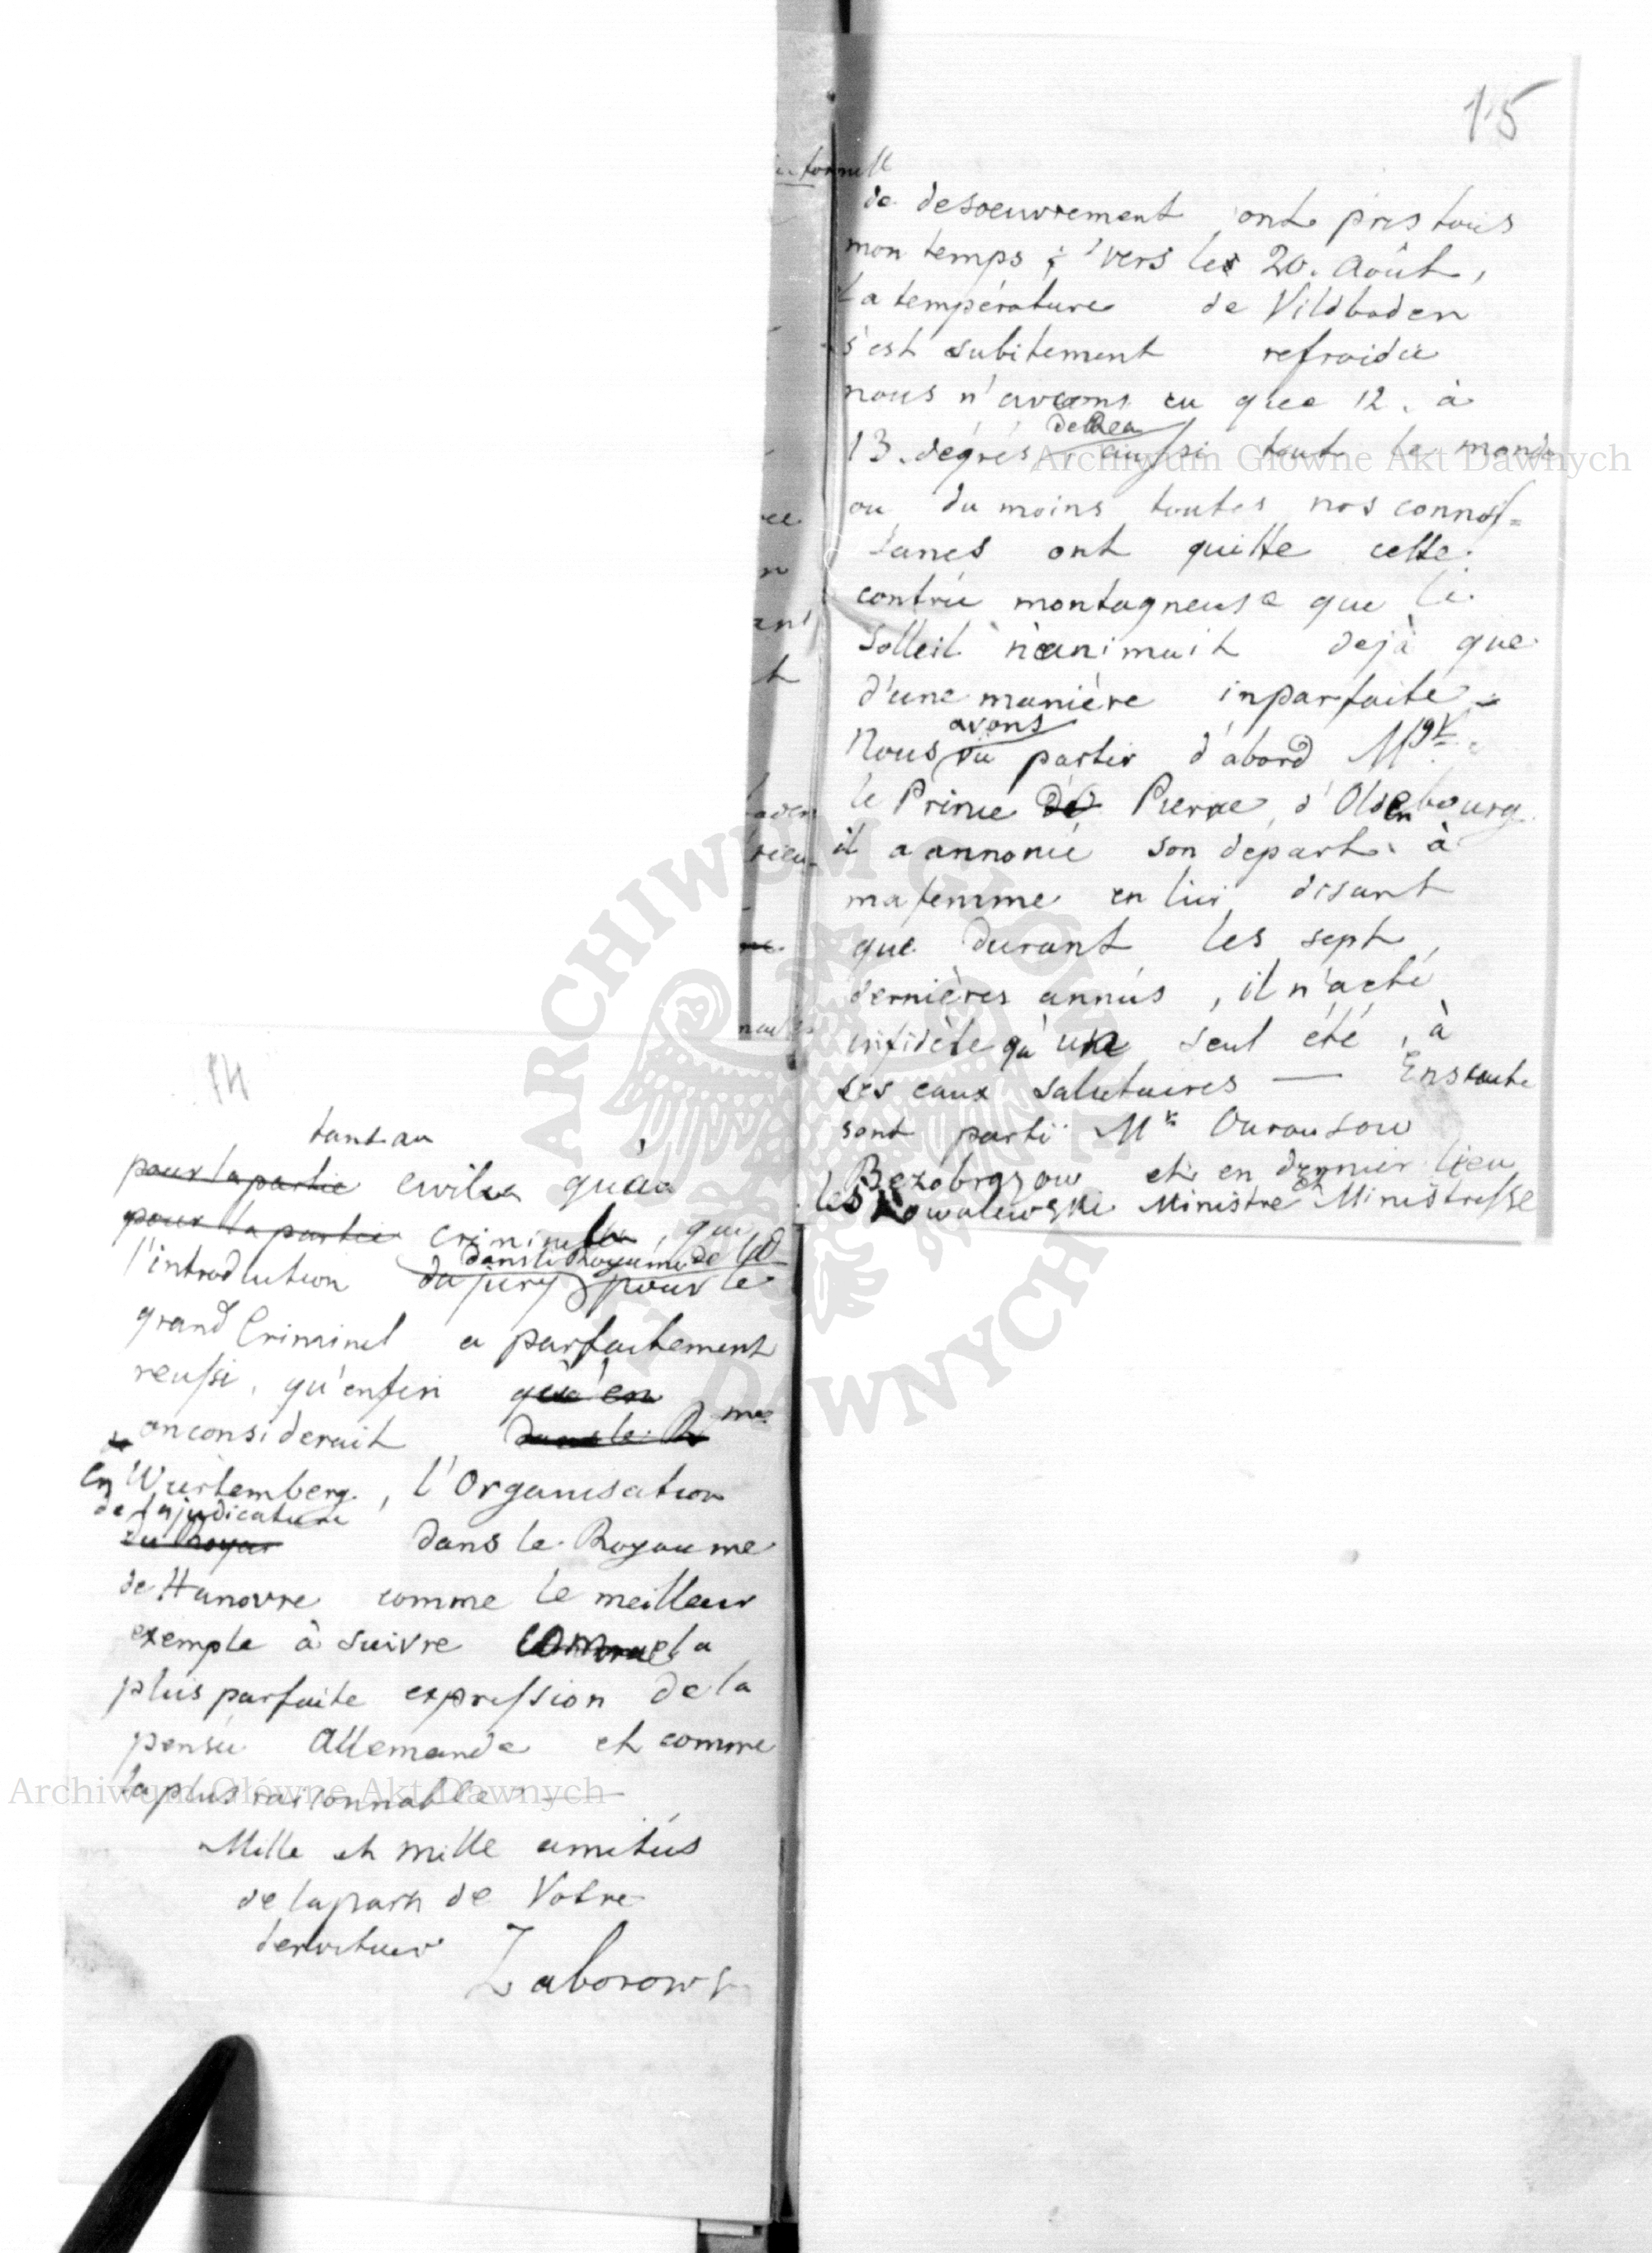 14
tant au
pour la partie civile qu'au
pour la partie criminelle, que
dans le Royaume de
l'introdution du jury pour le
grand Criminel a parfaitement
reussi, qu'enfin qu'en
on considerait dans le R me
en Würtemberg, l'Organisation
de la judicature
du Royau dans le Royaume
de Hanovre comme le meilleur
exemple à suivre comme la
plus parfaite expression de la
pensée Allemande et comme
la plus raisonnable —
Mille et mille amitiés
de la part de Votre
serviteur Zaborows
15
de desoeuvrement ont pris tous
mon temps; vers les 20. Août,
la température de Vildbaden
s'est subitement refroidie
nous n'avions eu que 12. à
13. dégrés, aussi tout le monde
ou du moins toutes nos connois=
sances ont quitté cette
contrée montagneuse que le
solleil n'animait dejà que
d'une manière inparfaite –
avons
Nous vu partir d'abord Mgr.
le Prince de Pierre d'Oldenbourg
il a annoncé son départ à
ma femme en lui disant
que durant les sept
dernières années, il n'a été
infidèle qu'une seul été, à
ses eaux salutaires — Ensuite
sont parti Mr Ourousow
Bezobrazow et en dernier lieu
les Kowalewski Ministre et Ministresse
Archiwum Główne Akt Dawnych
Archiwum Główne Akt Dawnych
ARCHIWUM GŁÓWNE AKT DAWNYCH